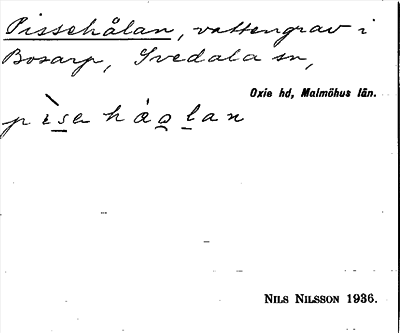 Pissehålan, vattengrav i
Bosarp, Svedala sn,
Oxie hd, Malmöhus län.
pìse háolan
NILS NILSSON 1936.